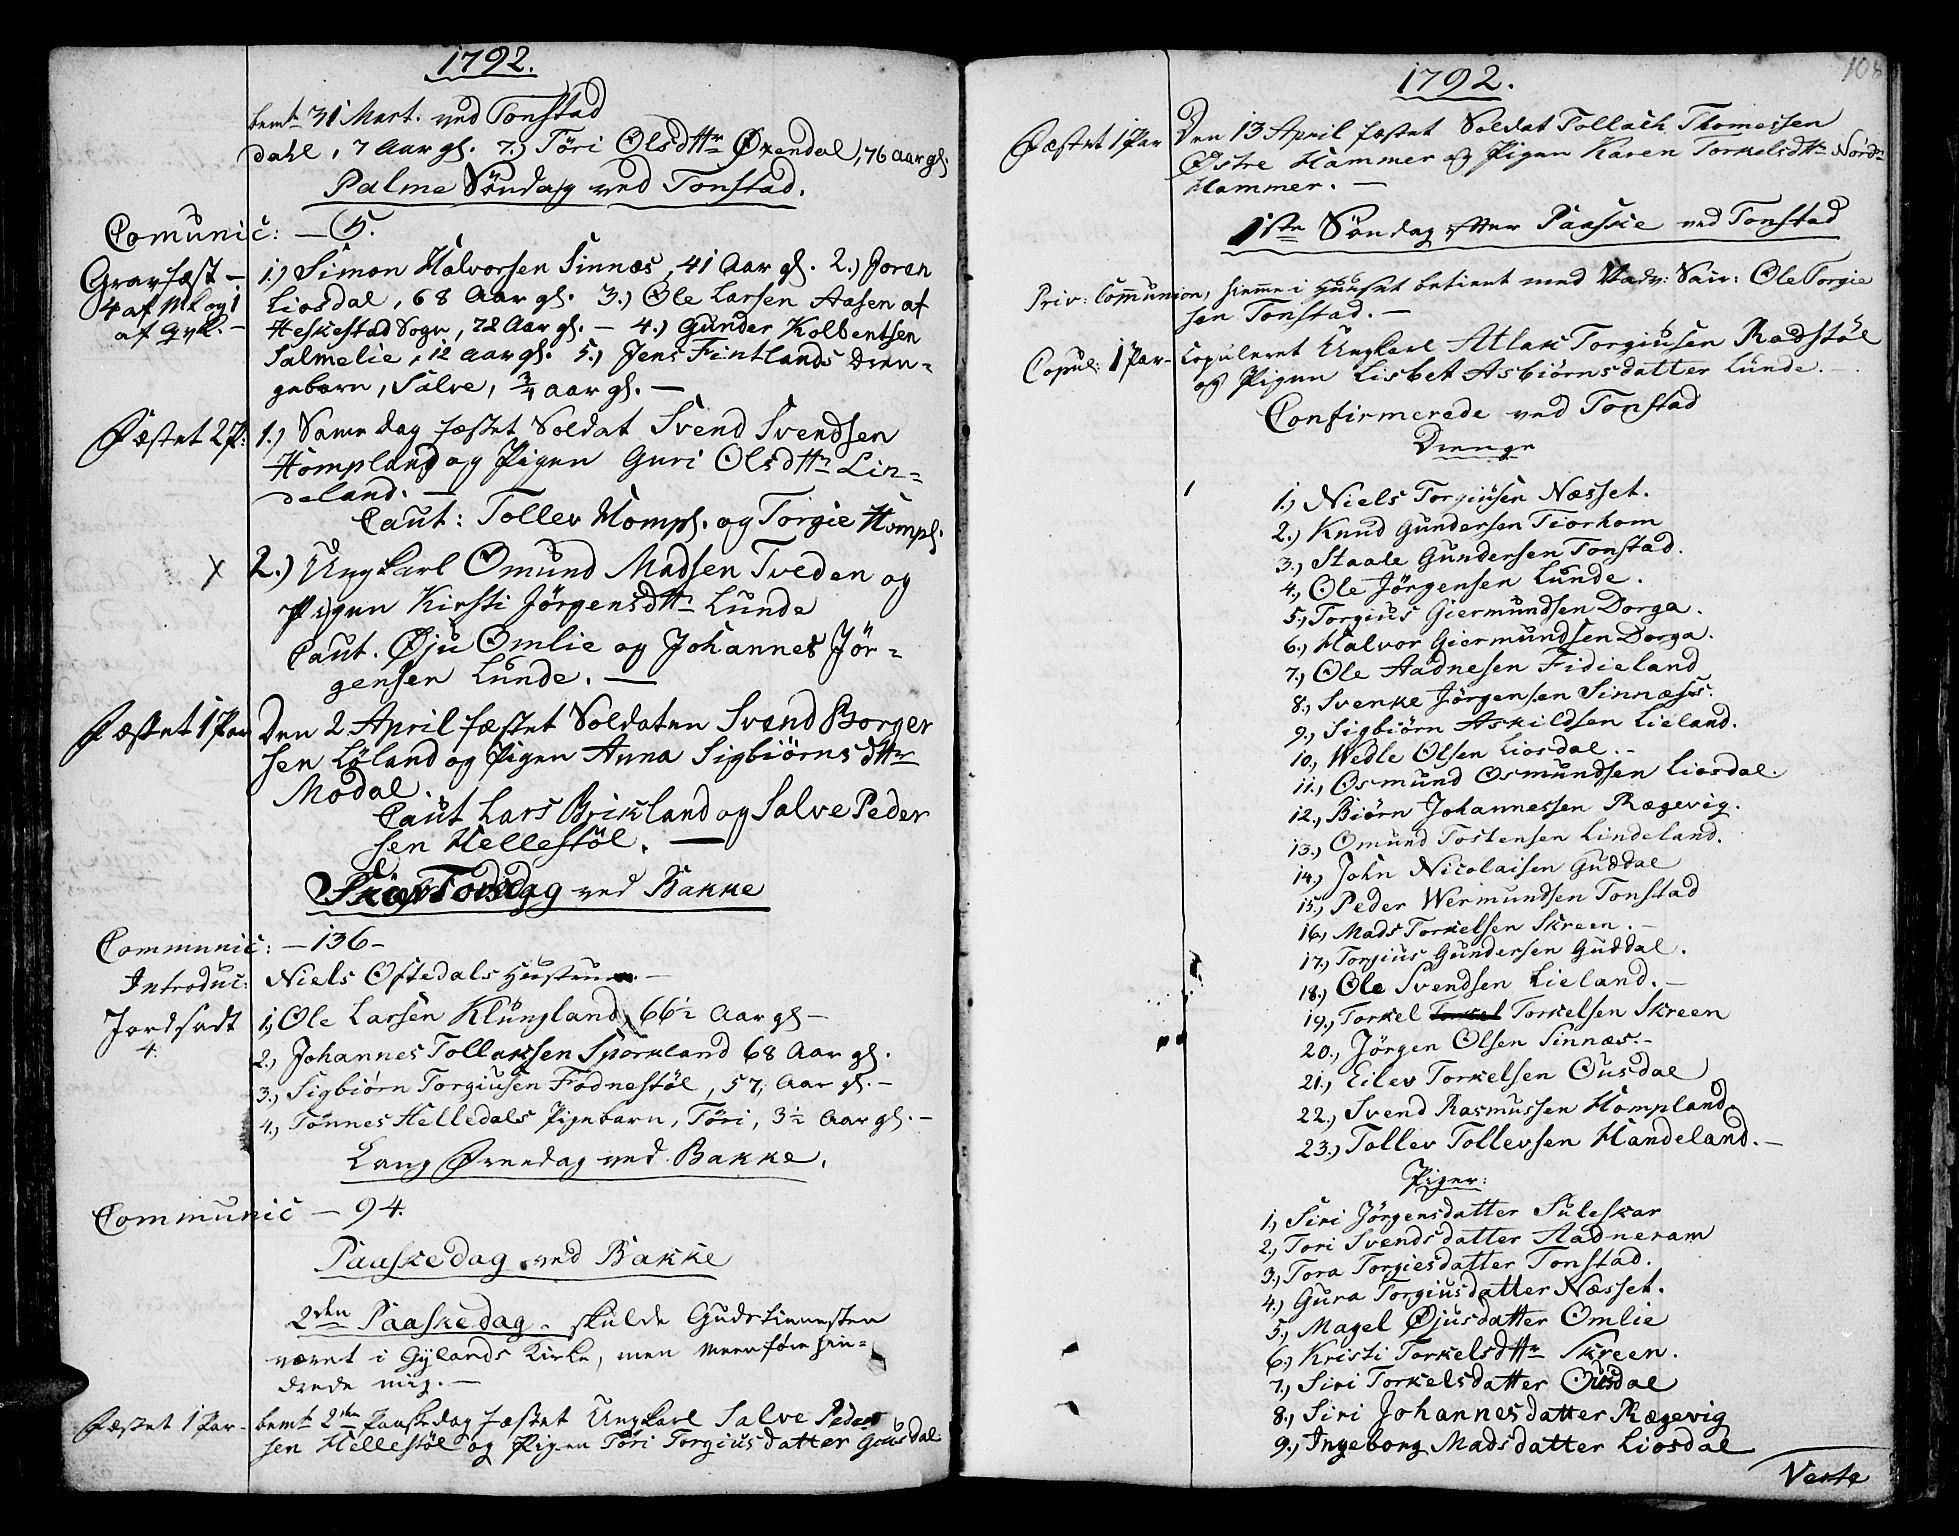 1792.
bemt 31 Mart. ved Tonstad
dahl, 7 Aar gl. 7.) Töri Olsdttr Øxendal, 76 aar gl.
Palme Söndag ved Tonstad.
Comunic: — 5.
Gravfæst —
4 af Mk og 1
af Gyl. —
1.) Simon Halvorsen Sinnæs, 41 Aar gl. 2.) Joren
Liosdal, 68 Aar gl. 3.) Ole Larsen Aasen af
Heskestad Sogn, 72 Aar gl. — 4.) Gunder Kolbentsen
Salmelie, 12 aar gl. 5.) Jens Fintlands Dren-
gebarn, Salve, 3/4 aar gl. —
Fæstet 2 P: 1.) Same dag fæstet Soldat Svend Svendsen
Hompland og Pigen Guri Olsdttr Lin-
deland. —
Caut: Tollev Hompl. og Torgie Hompl.
x 2.) Ungkarl Omund Madsen Tveden og
Pigen Kirsti Jörgensdttr Lunde
Caut. Øju Omlie og Johannes Jör-
gensen Lunde. —
Fæstet 1 Par Den 2 April fæstet Soldaten Svend Borger
sen Löland og Pigen Anna Sigbiörnsdttr
Modal.
Caut Lars Birkland og Salve Peder
sen Hellestöl. —
Skier Torsdag ved Bakke
Communic: — 136 —
Introduc: Niels Oftedals Hustrue. —
Jordfadt
4.
1.) Ole Larsen Klungland, 66½ Aar gl —
2.) Johannes Tollaksen Sporkland 68 Aar gl.
3.) Sigbiörn Torgiusen Fodnestöl, 57, Aar gl. —
4.) Tönnes Helledals Pigebarn, Töri, 3½ Aar gl. —
Lang Fredag ved Bakke.
Communic — 94.
Paaskedag ved Bakke
2den Paaskedag. skulde Gudstienesten
været i Gylands Kirke, men Meenföre hin-
drede mig. —
Fæstet 1 Par — bemt 2den Paaskedag fæstet Ungkarl Salve Peder
sen Hellestöl og Pigen Töri Torgiusdatter Gousdal
108
1792.
Fæstet 1 Par Den 13 April fæstet Soldat Tollach Thomessen
Østre Hammer og Pigen Karen Torkelsdttr Nord-
Hammer. —
1ste Söndag efter Paaske ved Tonstad
Priv: Communion, hiemme i Huuset betient med Nadv: Sacr: Ole Torgie
sen Tonstad. —
Copul: 1 Par — Copuleret Ungkarl Atlak Torgiusen Radstöl
og Pigen Lisbet Asbiörnsdatter Lunde. —
Confirmerede ved Tonstad
Drenge
1.) Niels Torgiusen Næsset.
2.) Knud Gundersen Tiorhom
3.) Staale Gundersen Tonstad.
4.) Ole Jörgensen Lunde.
5.) Torgius Giermundsen Dorga.
6.) Halvor Giermundsen Dorga.
7.) Ole Aadnesen Fidieland
8.) Svenke Jörgensen Sinnæs.
9.) Sigbiörn Askildsen Lieland.
10.) Wedle Olsen Liosdal. —
11.) Osmund Osmundsen Liosdal.
12.) Biörn Johannessen Rægevig.
13.) Omund Tostensen Lindeland.
14.) John Nicolaisen Guddal
15.) Peder Wermundsen Tonstad
16.) Mads Torkelsen Skreen. —
17.) Torgius Gundersen Guddal.
18.) Ole Svendsen Lieland. —
19.) Torkel Torkel Torkelsen Skreen
20.) Jörgen Olsen Sinnæs. —
21.) Eilev Torkelsen Ousdal
22.) Svend Rasmussen Hompland.
23.) Tollev Tollevsen Handeland. —
Piger:
1.) Siri Jörgensdatter Suleskar
2.) Tori Svendsdatter Aadneram
3.) Tora Torgiesdatter Tonstad.
4.) Gura Torgiusdatter Næsset.
5.) Magel Øjusdatter Omlie
6.) Kristi Torkelsdttr Skreen.
7.) Siri Torkelsdatter Ousdal
8.) Siri Johannesdatter Rægevig
9.) Ingeborg Madsdatter Liosdal
Verte